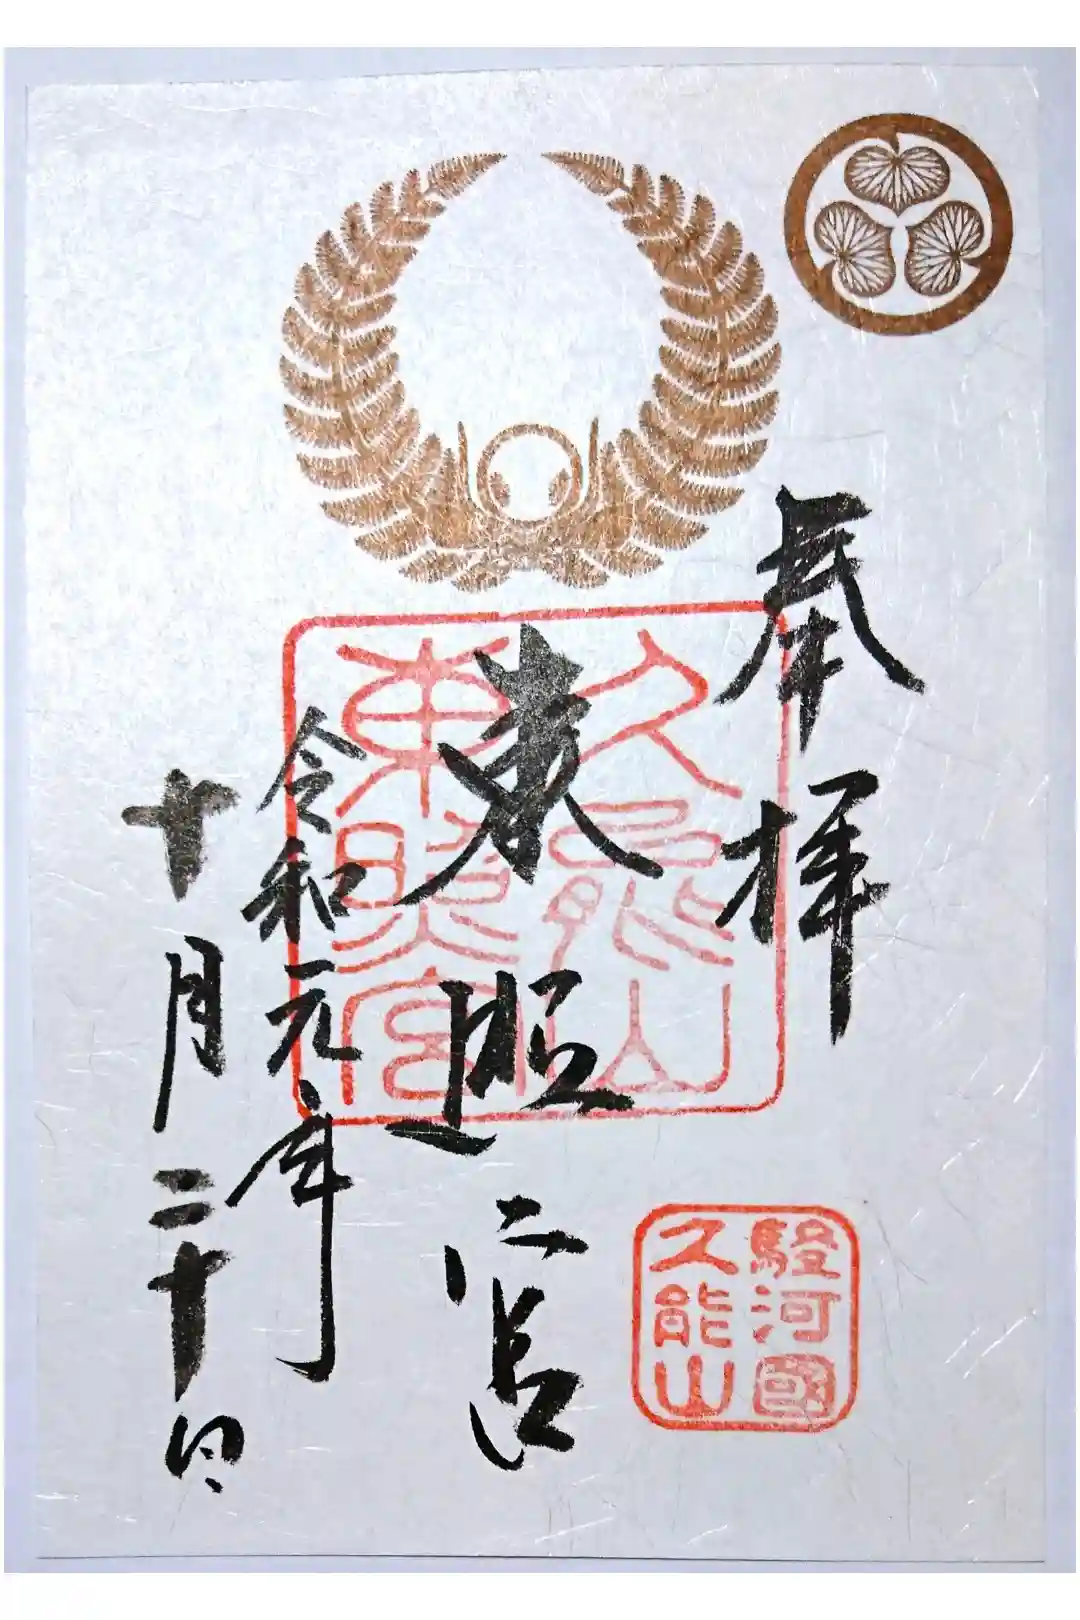 奉拝
久能山
東照宮
東照宮
駿河國
久能山
令和元年
十月二十日